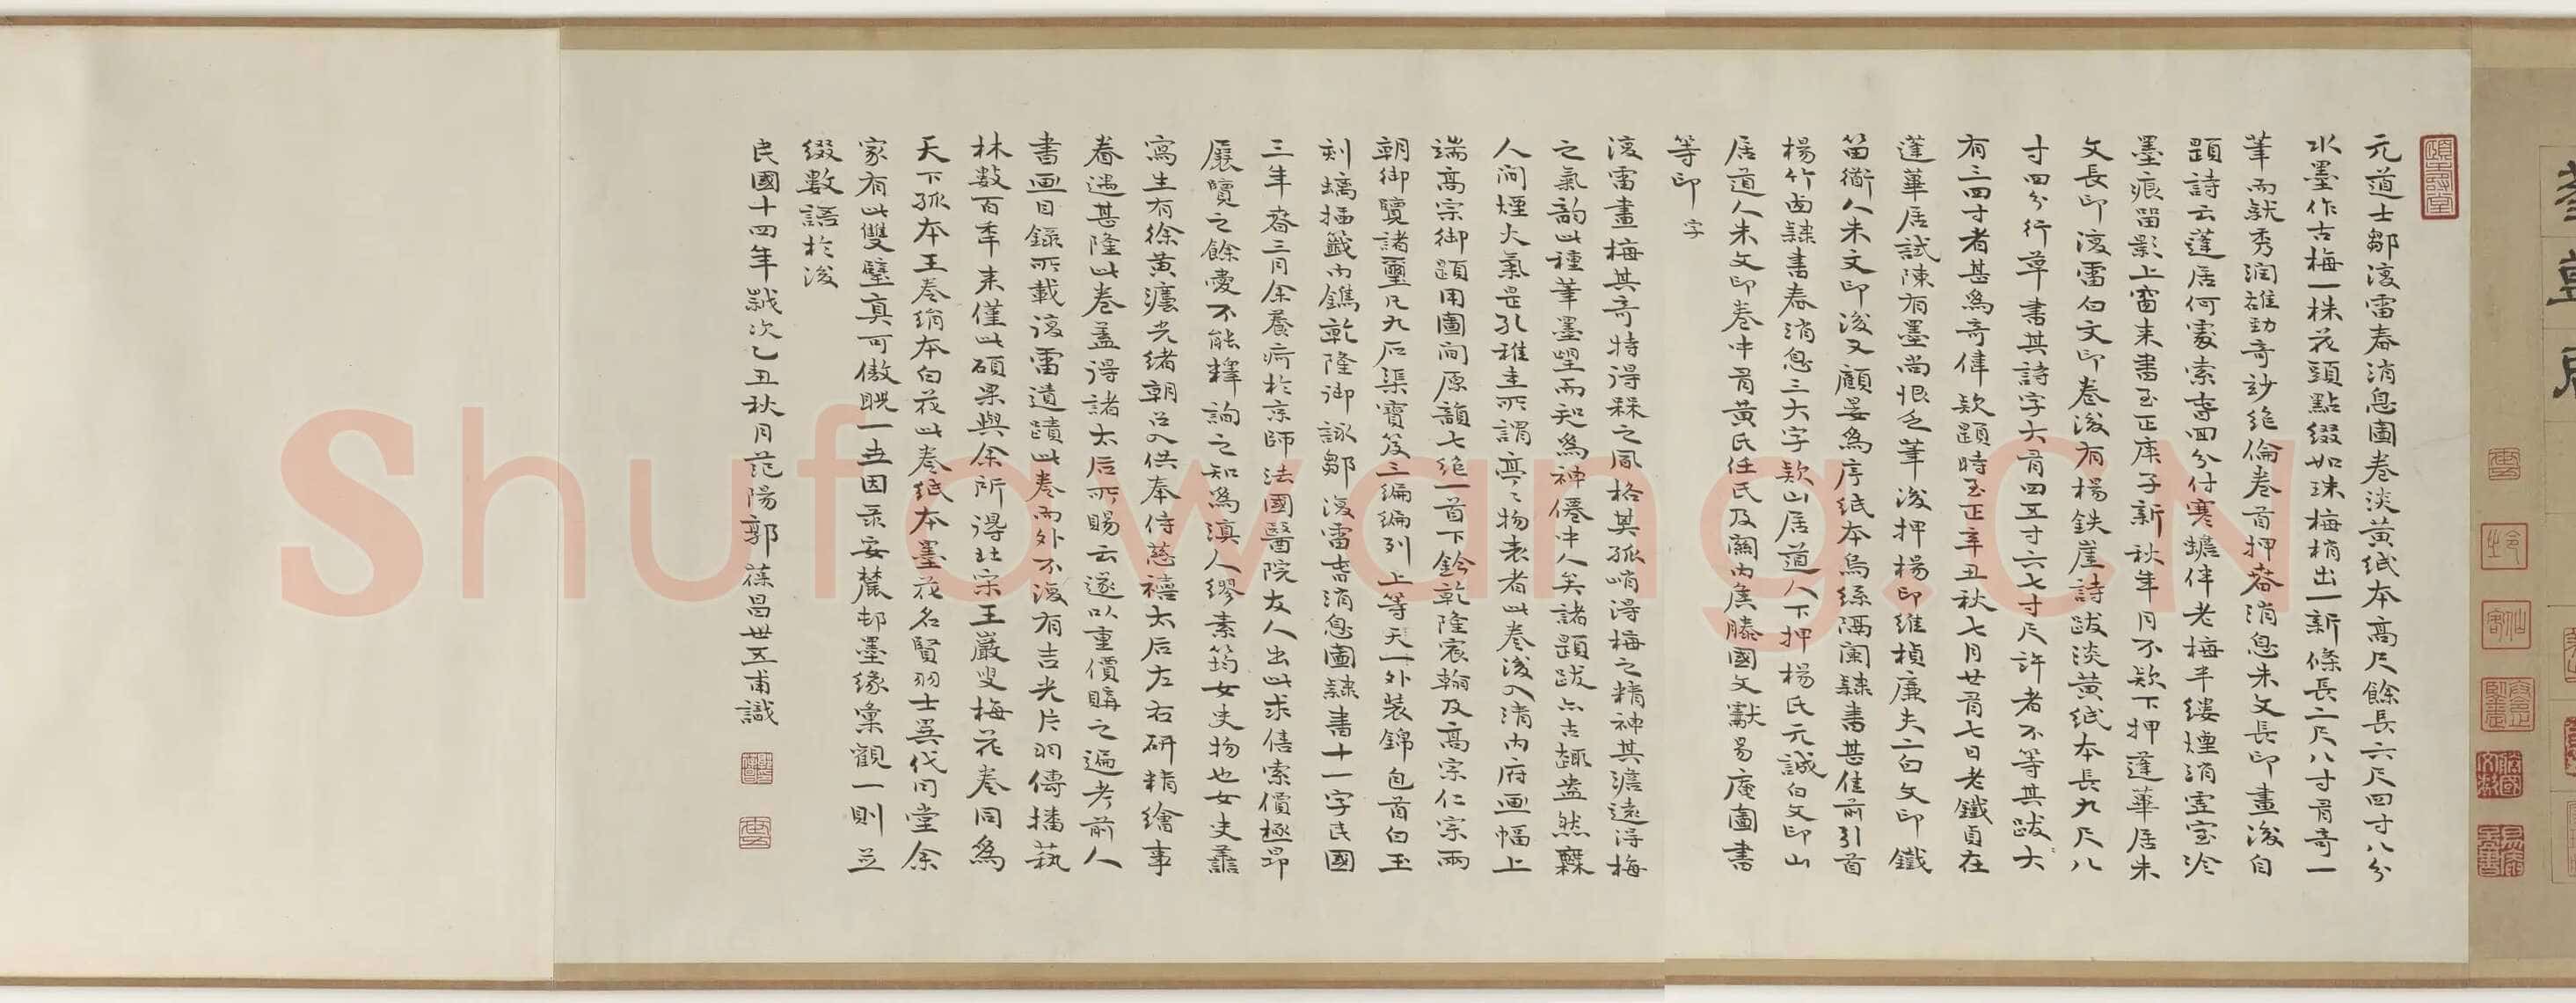 元道士鄒復雷春消息圖卷淡黃紙本高尺餘長六尺四寸八分
水墨作古梅一株花頭點綴如珠梅梢出一新條長二尺八寸有奇一
筆而就秀潤雄勁奇妙絶倫卷首押春消息朱文長印畫後自
題詩云蓬居何處索春回分付寒蟾伴老梅半縷煙消虛室冷
墨痕留影上窗來書至正庚子新秋年月不欵下押蓬華居朱
文長印復雷白文印卷後有楊鉄崖詩跋淡黃紙本長九尺八
寸四分行草書其詩字大有四五寸六七寸尺許者不等其跋大
有三四寸者甚爲奇偉欵題時至正辛丑秋七月廿有七日老鐵貞在
蓬華居試陳有墨尚恨乏筆後押楊印維楨廉夫二白文印鐵
笛衜人朱文印後又顧晏爲序紙本烏絲闌隸書甚佳前引首
楊竹西隸書春消息三大字欵山居道人下押楊氏元誠白文印山
居道人朱文印卷中有黃氏任氏及關內焦滕國文獻易庵圖書
等印
字
復雷畫梅其奇特得梅之風格其孤峭得梅之精神其澹遠得梅
之氣韵此種筆墨望而知爲神僊中人矣諸題跋亦古趣盎然
人間煙火氣是孔稚圭所謂亭亭物表者此卷後入清內府画幅上
端高宗御題用圖間原韻七絶一首下鈐乾隆宸翰及高宗仁宗兩
朝御覽諸璽凡九石渠寶笈三編編列上等天一外裝錦包首白玉
刻螭插籤內鐫乾隆御詠鄒復雷春消息圖隸書十一字民國
三年春三月余養疴於京師法國醫院友人出此求售索價極昂
展覽之餘愛不能釋詢之知爲滇人繆素筠女史物也女史
寫生有徐黃灋光緒朝召入供奉侍慈禧太后左右研精繪事
眷遇甚隆此卷蓋得諸太后所賜云遂以重價購之遍考前人
書画目錄所載復雷遺蹟此卷而外不復有吉光片羽傳播萟
林數百年來僅此碩果與余所得北宋王巖叟梅花卷同爲
天下孤本王卷絹本白花此卷紙本墨花名賢羽士異代同堂余
家有此雙璧真可傲睨一世因录安麓邨墨緣彙觀一則並
綴數語於後
民國十四年歲次乙丑秋月范陽郭葆昌世五甫識
Shufawang.CN